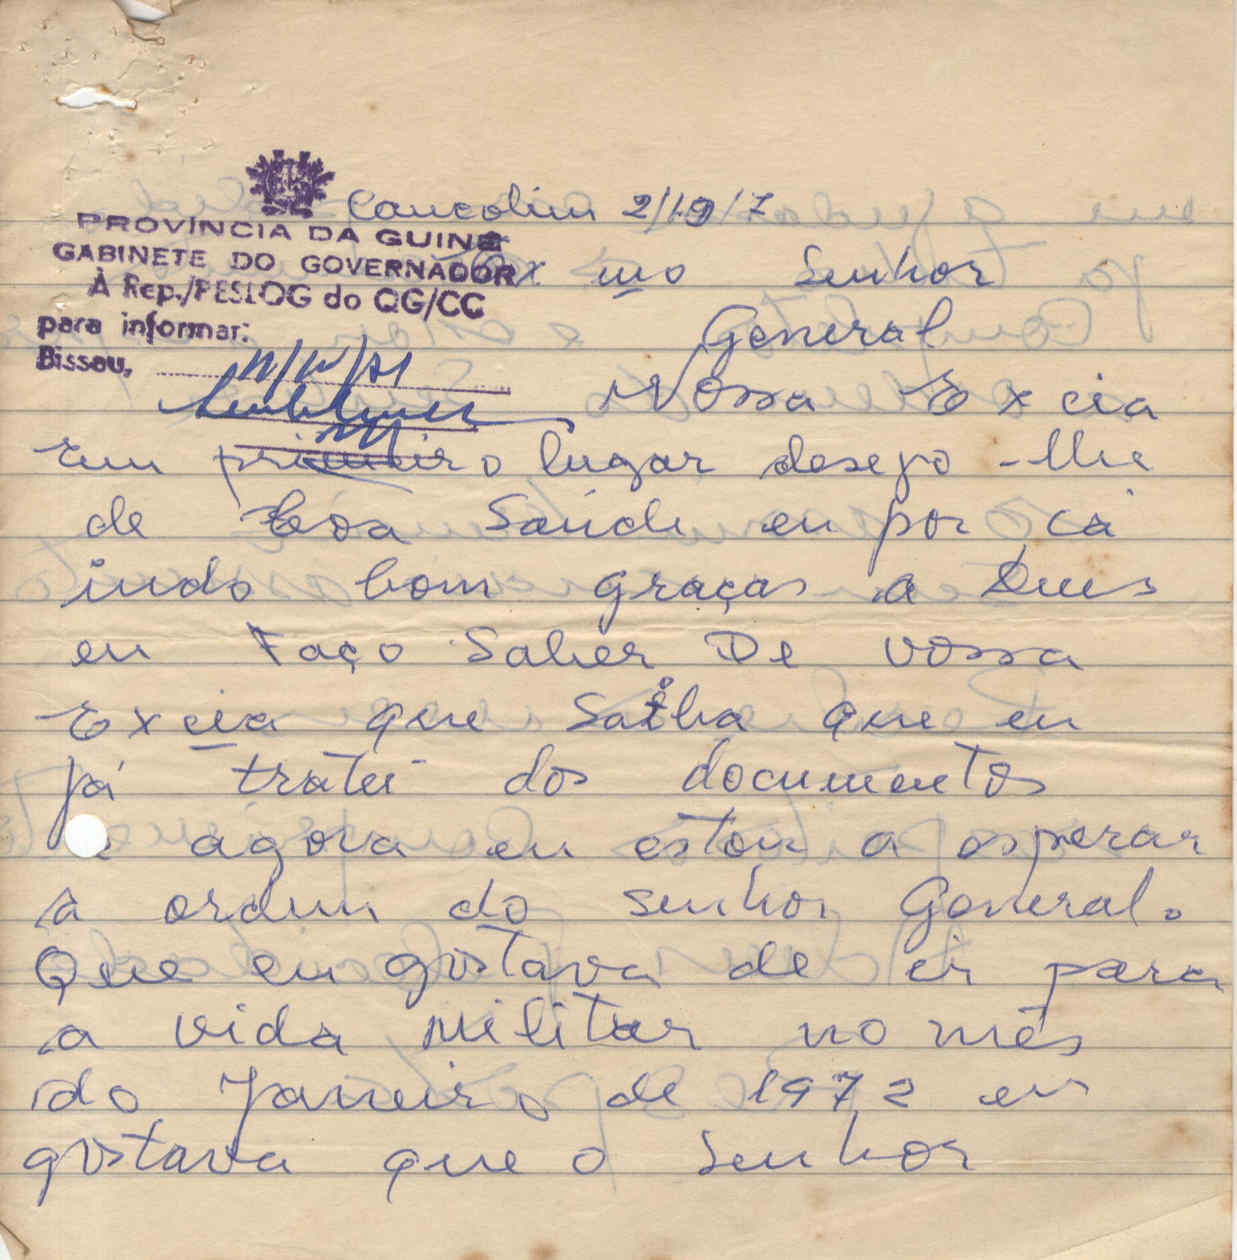 Cancolim 2/19/7
PROVÍNCIA DA GUINÉ
GABINETE DO GOVERNADOR
À Rep./PESLOG do QG/CC
para informar:
Bissau,
Ex mo Senhor
General
Vossa Excia
Em primeiro lugar desejo-lhe
de boa Saúde eu por cá
indo bom graças a Deus
eu Faço Saber De vossa
Excia que Saiba que eu
já tratei dos documentos
e agora eu estou a esperar
a ordem do senhor General.
Que eu gostava de ir para
a vida militar no mês
do Janeiro de 1972 eu
gostava que o Senhor